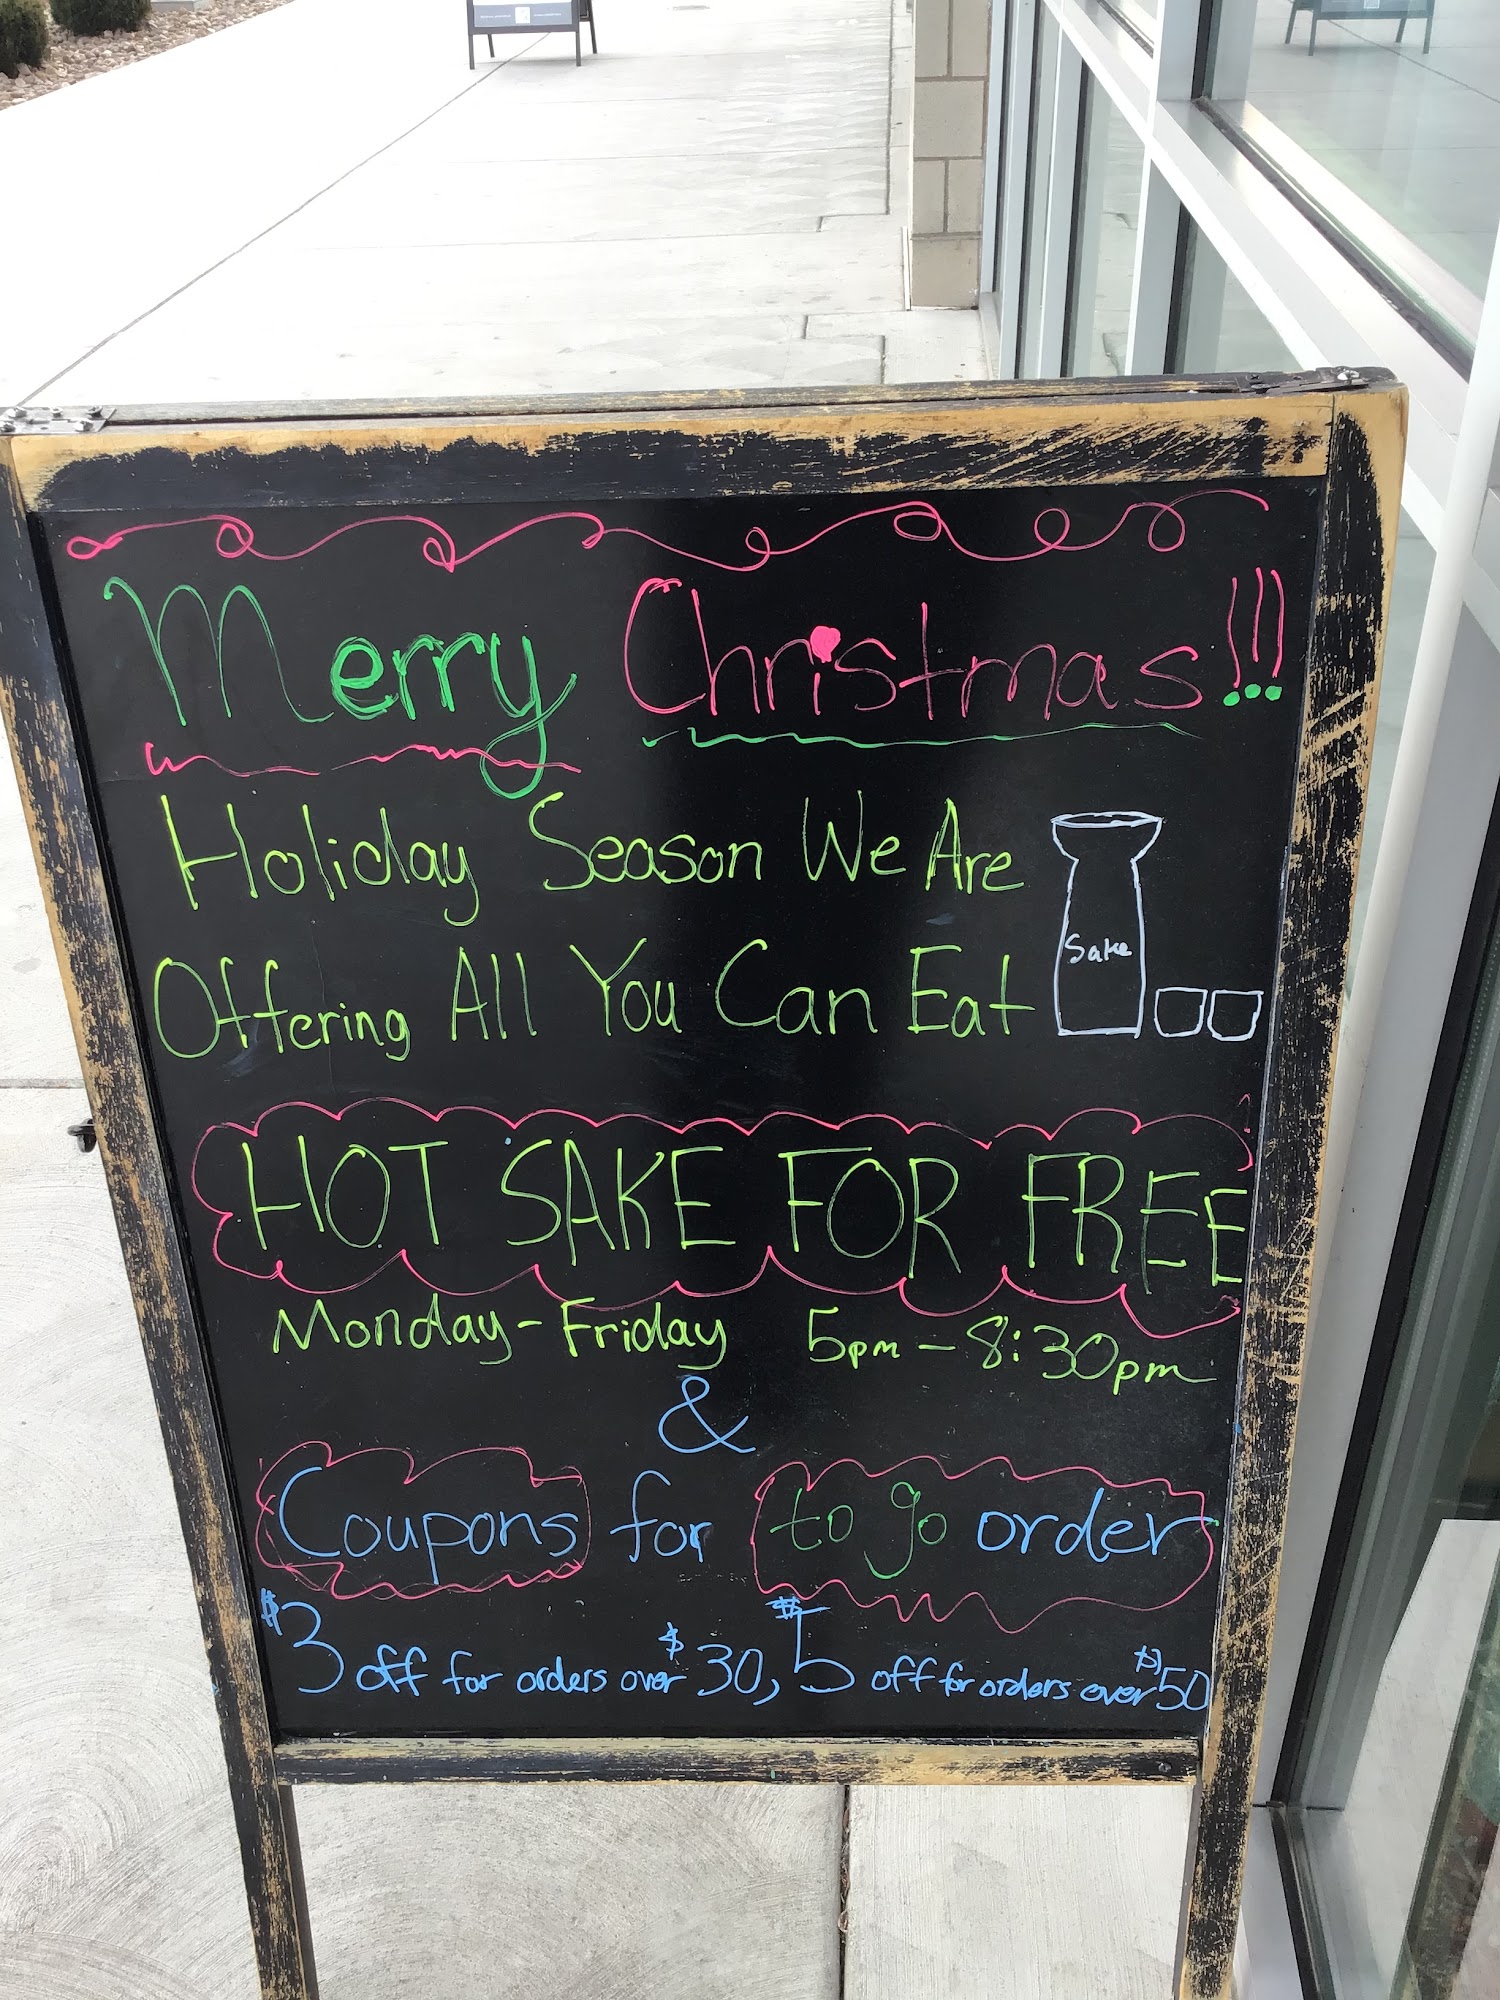 Merry Christmas!!!
Holiday Season We Are
Offering All You Can Eat
Sake
HOT SAKE FOR FREE
Monday-Friday 5pm - 8:30pm
&
Coupons for to go order
$3 off for orders over $30, $5 off for orders over $50